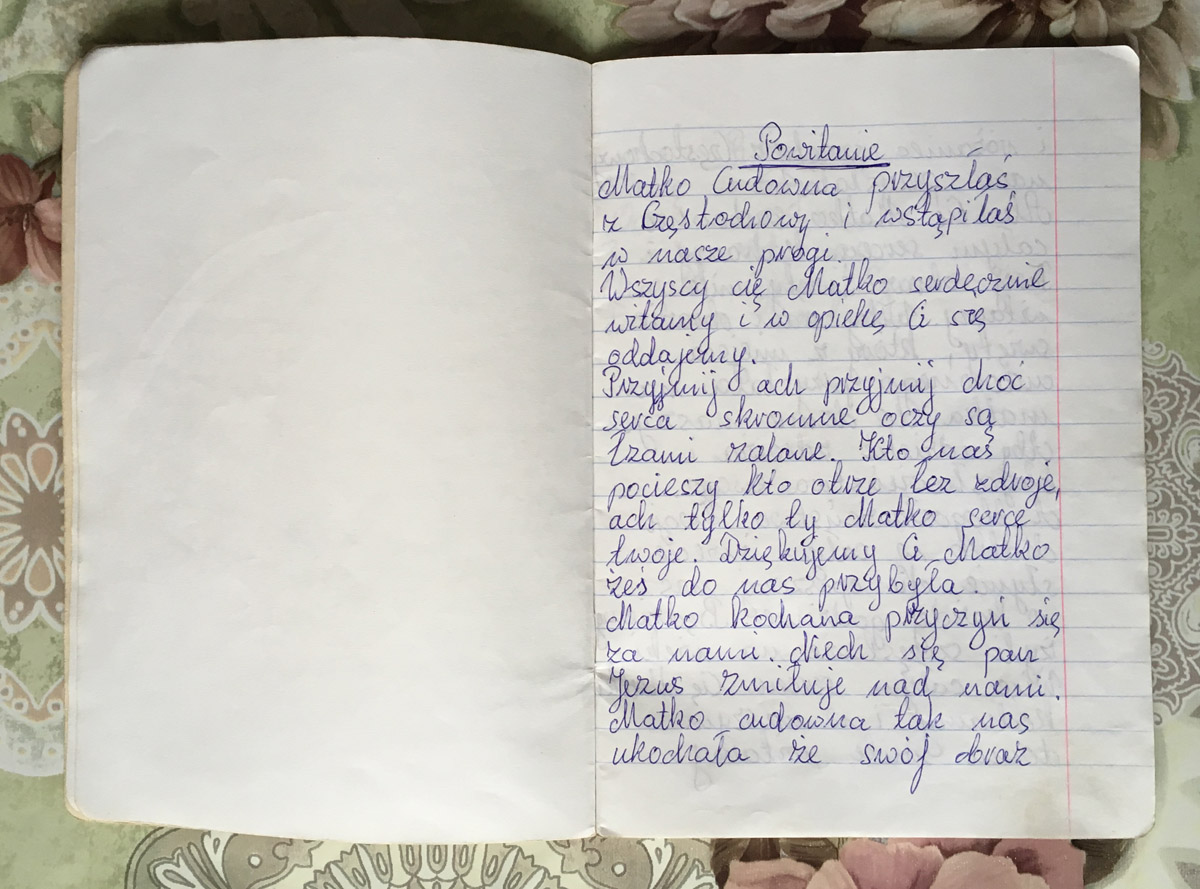 Powitanie
Matko Cudowna przyszłaś
z Częstochowy i wstąpiłaś
w nasze progi.
Wszyscy cię Matko serdęcznie
witamy i w opiekę Ci się
oddajemy.
Przyjmij ach przyjmij choć
serca skromne oczy są
łzami zalane. Kto nas
pocieszy kto otrze łez zdroje,
ach tylko ty Matko serce
twoje. Dziękujemy Ci Matko
żeś do nas przybyła.
Matko kochana przyczyń się
za nami. Niech się pan
Jezus zmiłuje nad nami.
Matko cudowna tak nas
ukochała że swój obraz